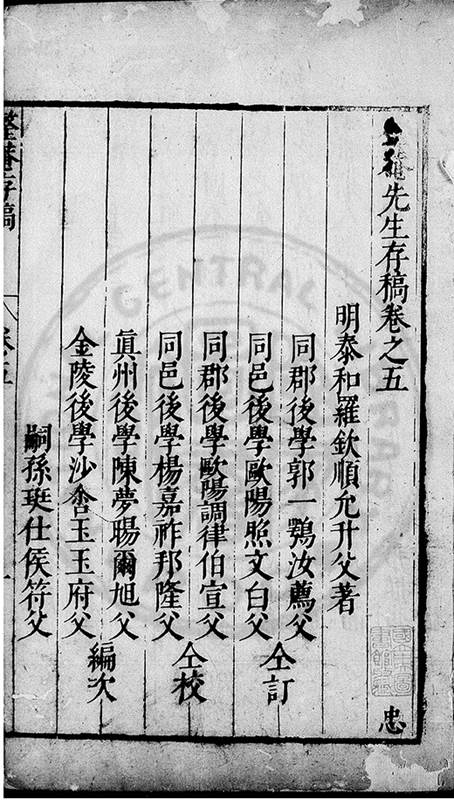 先生存稿卷之五
忠
明泰和羅欽順允升父著
同郡後學郭一鶚汝薦父
同邑後學歐陽照文白父
仝訂
同郡後學歐陽調律伯宣父
同邑後學楊嘉祚邦隆父
仝校
眞州後學陳夢暘爾旭父
金陵後學沙玉玉府父
編次
嗣孫珽仕侯符父
整菴存稿
卷五
CENTRAL